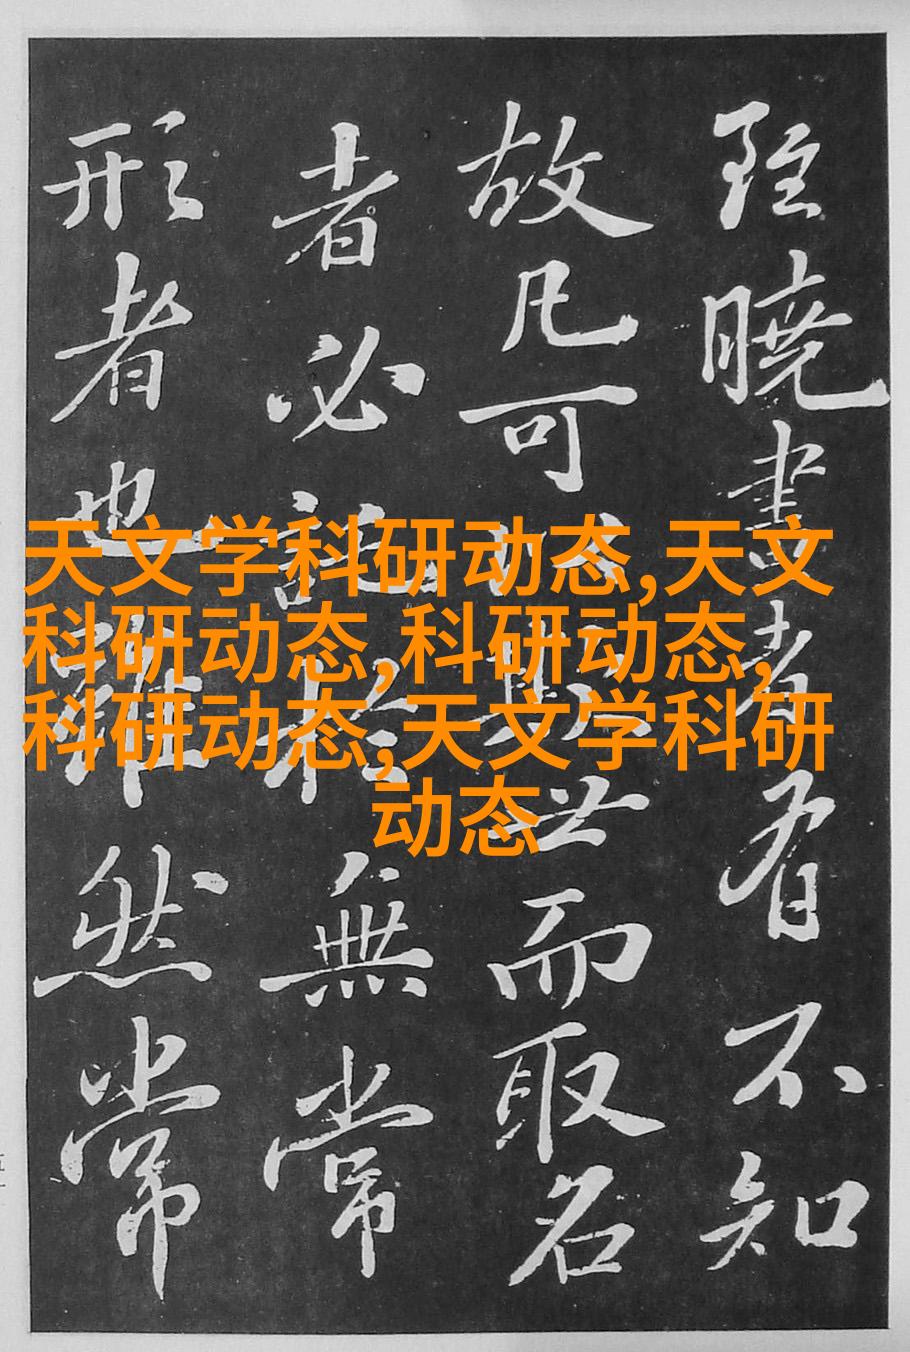 天文学科研动态,天文
科研动态,科研动态,
科研动态,天文学科研
动态
雖曉畫者有不知
故凡可以欺世而取名
者必託於無常
形者也雖然常